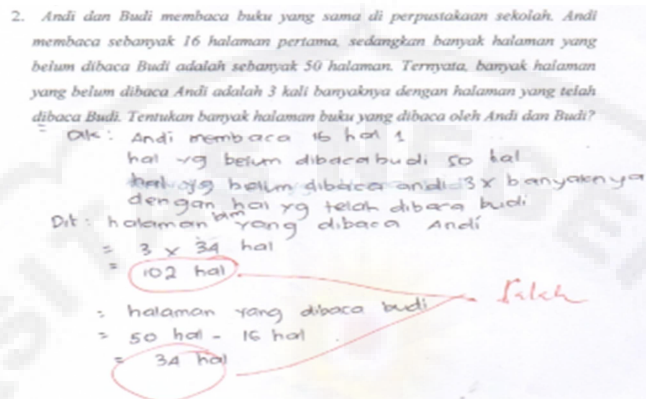 2. Andi dan Budi membaca buku yang sama di perpustakaan sekolah. Andi
membaca sebanyak 16 halaman pertama, sedangkan banyak halaman yang
belum dibaca Budi adalah sebanyak 50 halaman. Ternyata, banyak halaman
yang belum dibaca Andi adalah 3 kali banyaknya dengan halaman yang telah
dibaca Budi. Tentukan banyak halaman buku yang dibaca oleh Andi dan Budi?
Dik : Andi membaca 16 hal 1
hal yg belum dibaca budi 50 hal
hal yg belum dibaca andi 3x banyaknya
dengan hal yg telah dibaca budi
Dit : halaman blm yang dibaca Andi
= 3 x 34 hal
= 102 hal
Salah
= halaman yang dibaca budi
= 50 hal - 16 hal
= 34 hal